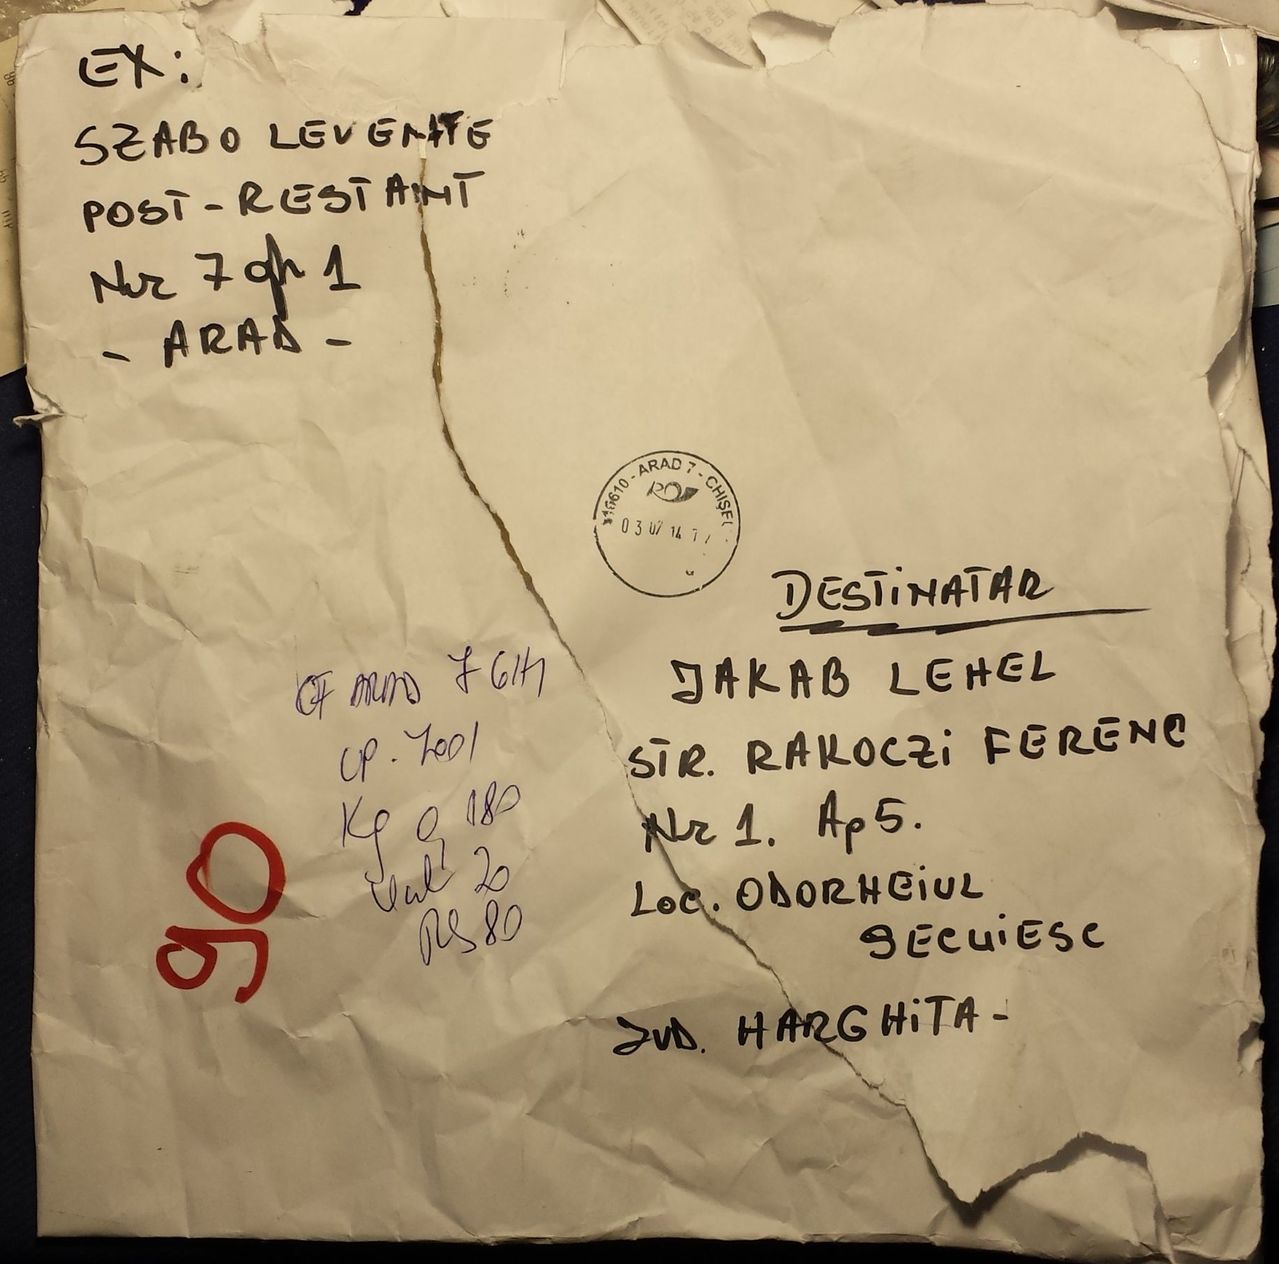 EX:
SZABO LEVENTE
POST-RESTANT
Nr 7 gh 1
- ARAD -
ARAD 7 - CHIȘE
RO
03 07 14
DESTINATAR
JAKAB LEHEL
STR. RAKOCZI FERENC
Nr 1. Ap 5.
Loc. ODORHEIUL
SECUIESC
JUD. HARGHITA -
OF ARAD 7 GH1
CP. 7001
Kg 0,180
Val 20
RS 80
90